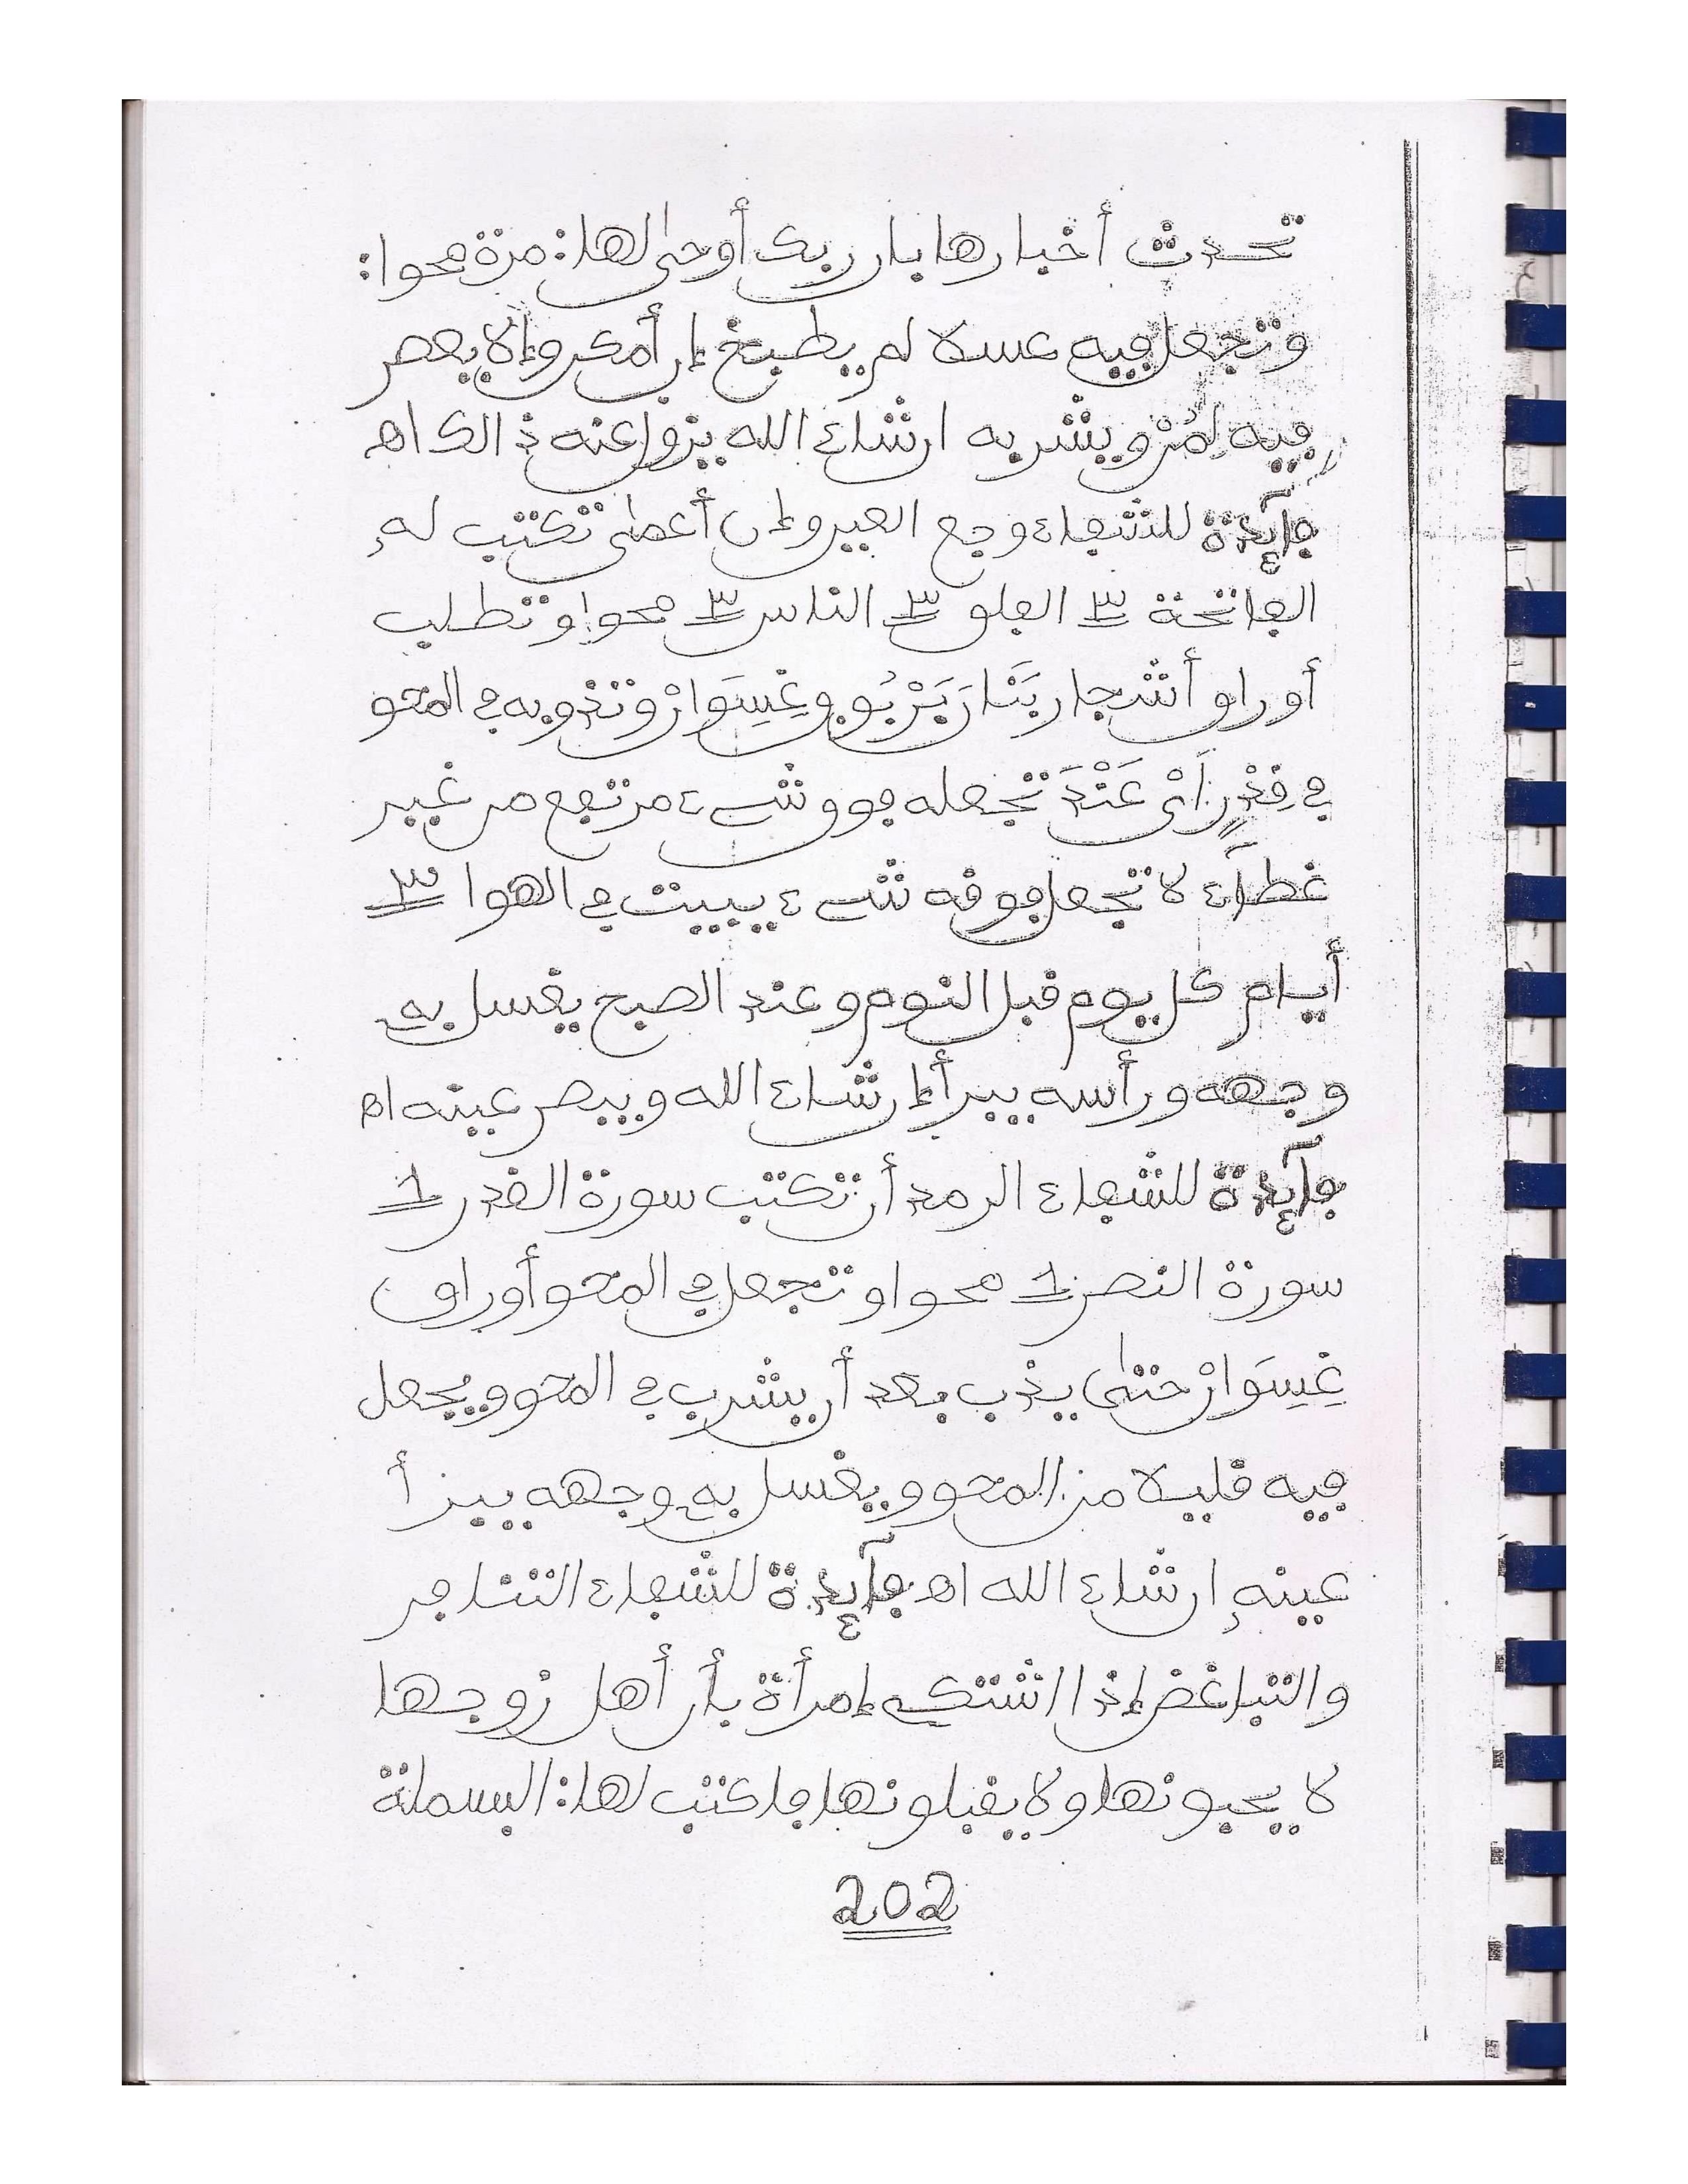 تحدث أخبارها بان ربك أوحى لها: مرة محوا:
وتجعل فيه عسلا لم يطبخ إن أمكن وإلا يعصر
فيه لمن ويشربه ان شاء الله يزول عنه ذالك اه
فآئدة للشفاء وجع العين وإن أعمى تكتب له
الفاتحة ٣ الفلق ٣ الناس ٣ محوا وتطلب
أوراق أشجار وتذوبه في المحو
في تجعله فوق شيء مرتفع من غير
غطآء لا تجعل فوقه شيء يبيت في الهوا ٣
أيام كل يوم قبل النوم وعند الصبح يغسل به
وجهه ورأسه يبرأ إن شاء الله ويبصر عينه اه
فآئدة للشفاء الرمد أن تكتب سورة القدر 1
سورة النصر 1 محوا وتجعل في المحو أوراق
غِيسَوَانْ حتى يذب بعد أن يشرب في المحو ويجعل
فيه قليلا من المحو ويغسل به وجهه يبرأ
عينه إن شاء الله اه فآئدة للشفاء التنافر
والتباغض إذا اشتكى إمرأة بأن أهل زوجها
لا يحبونها ولا يقبلونها فاكتب لها: البسملة
202